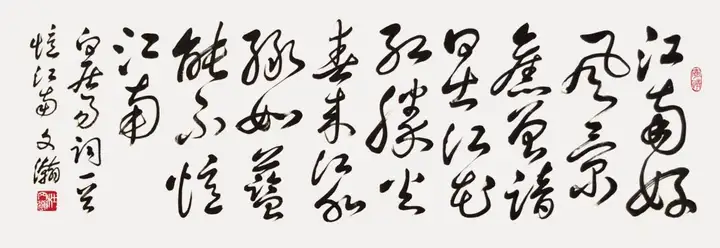 江南好
风景
舊曾諳
日出江花
红勝火
春来江水
绿如藍
能不憶
江南
白居易词一首
憶江南 文瀚